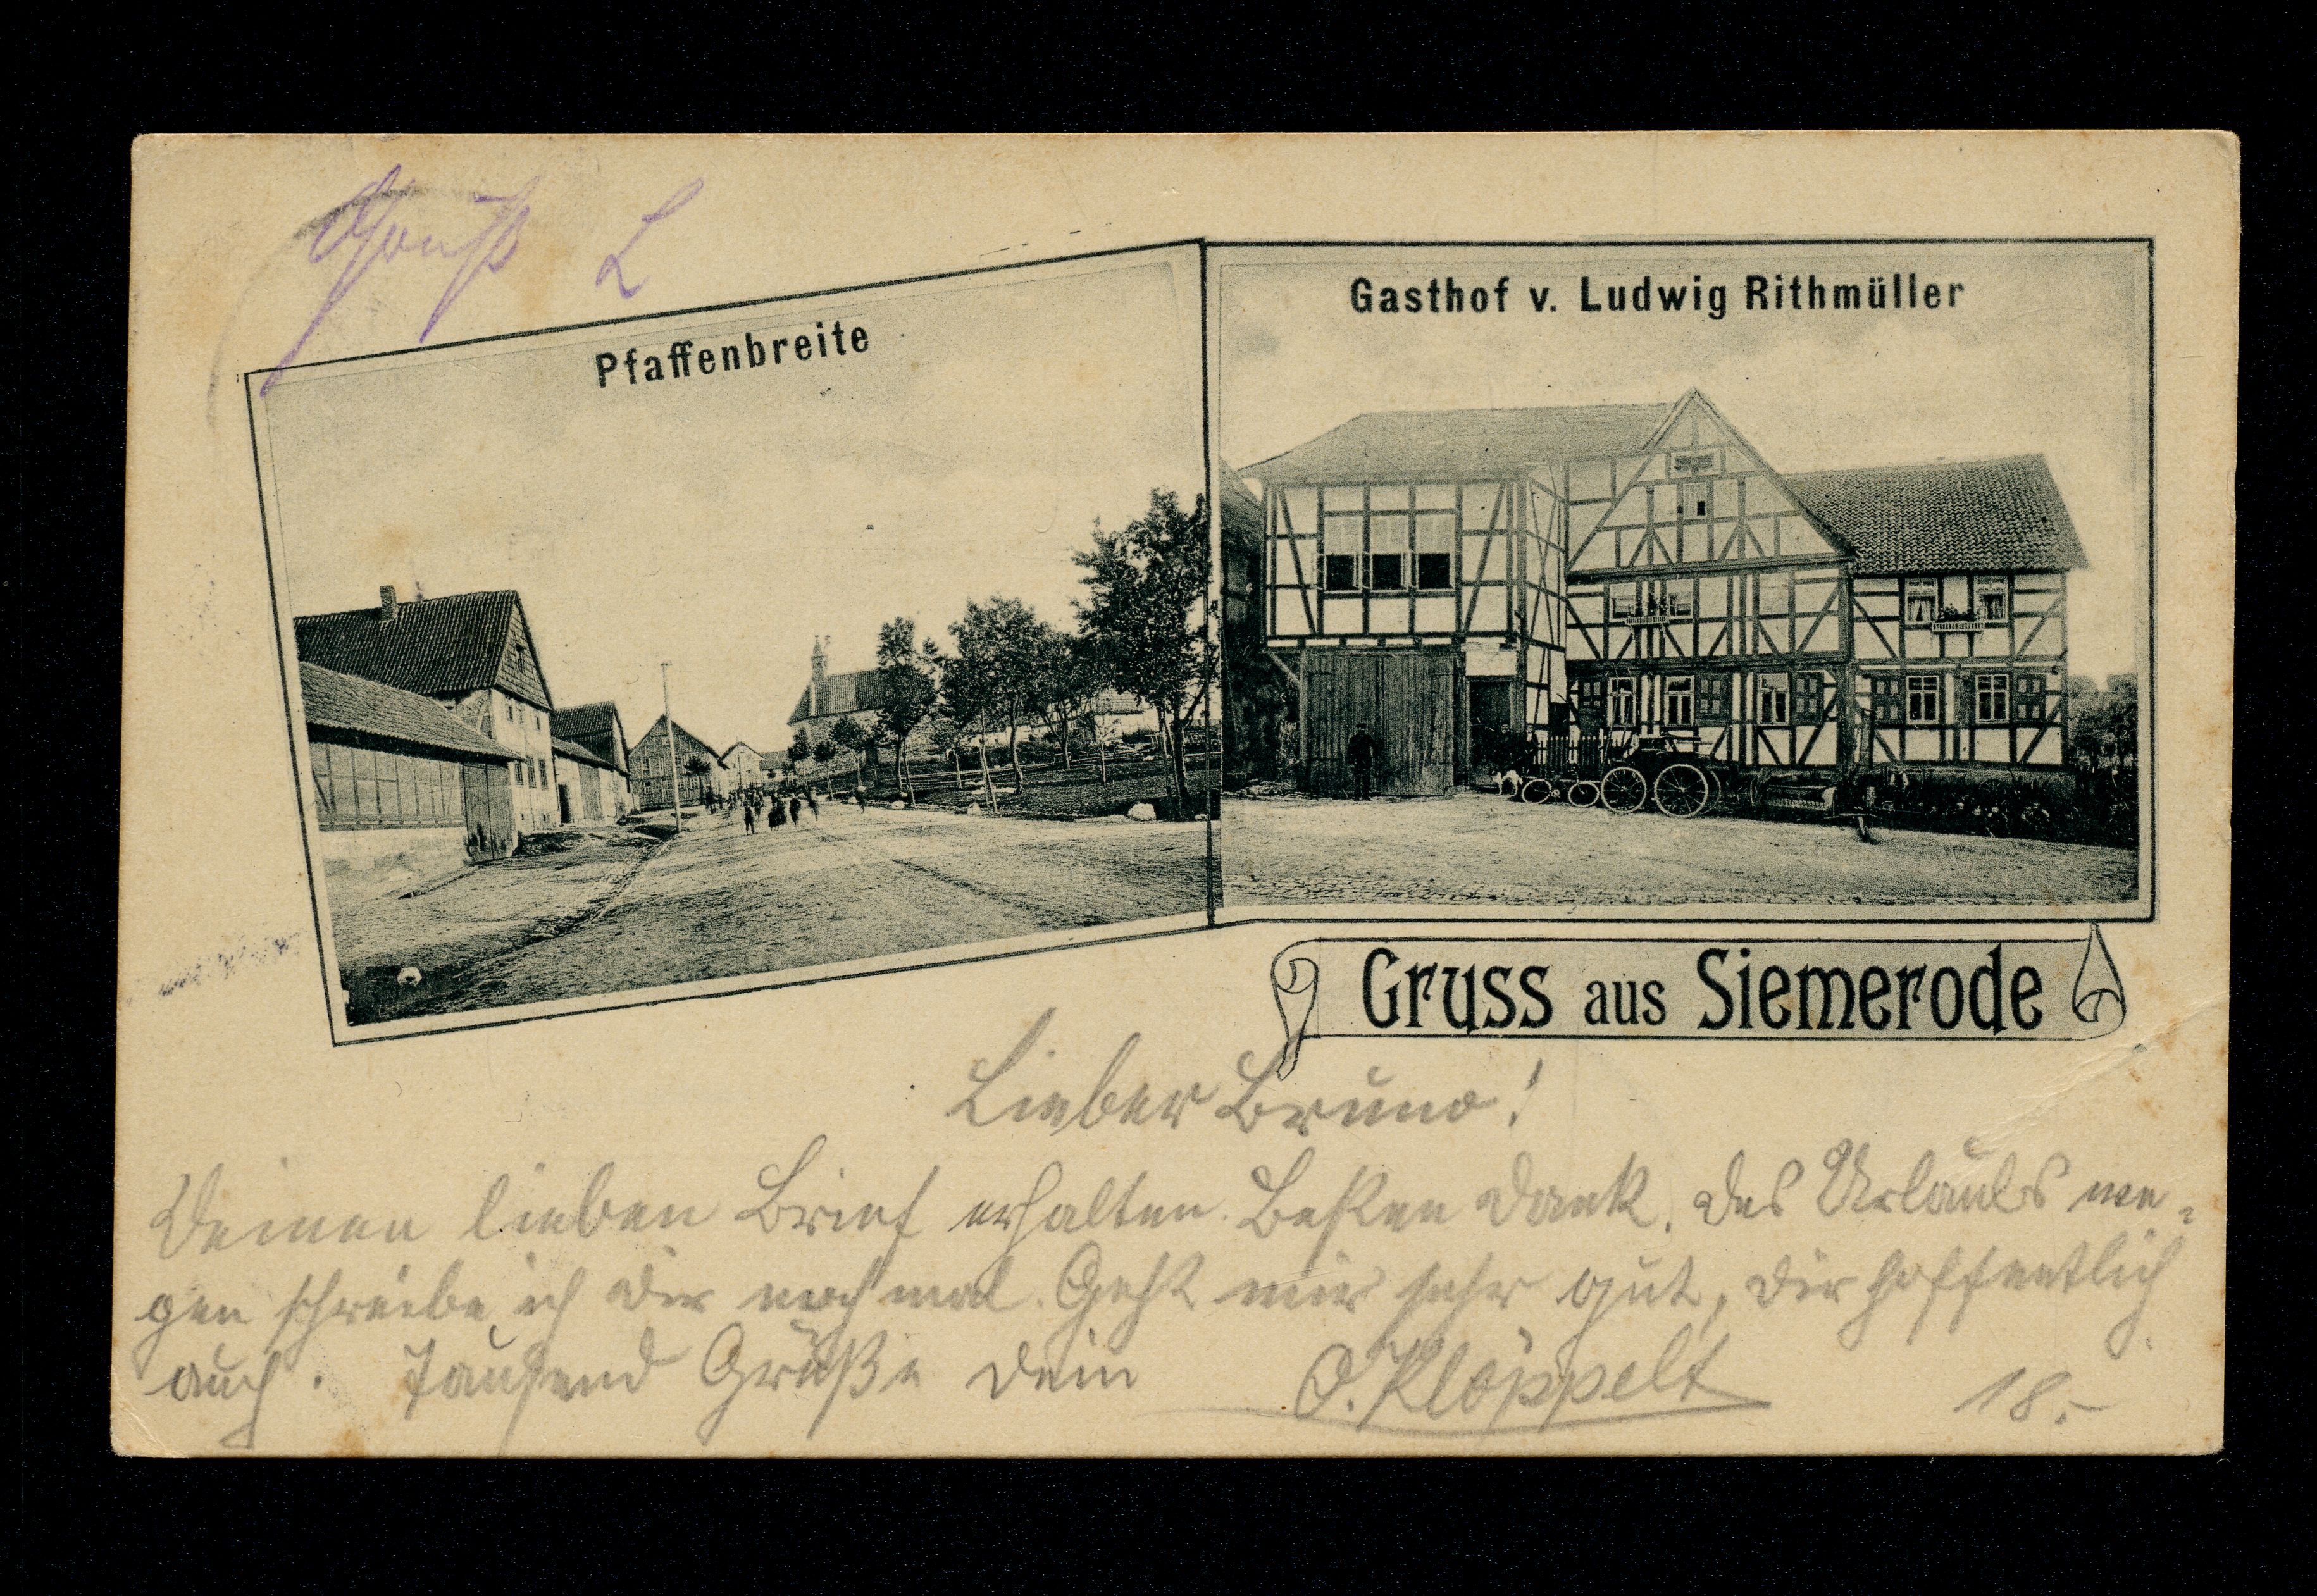 Gruß L
Pfaffenbreite
Gasthof v. Ludwig Rithmüller
Gruss aus Siemerode
Lieber Bruno!
Deinen lieben Brief erhalten. Besten Dank. Des Urlaubs we-
gen schreibe ich Dir noch mal. Geht mir sehr gut, Dir hoffentlich
auch. Tausend Grüße Dein O. Klöppelt 18.-